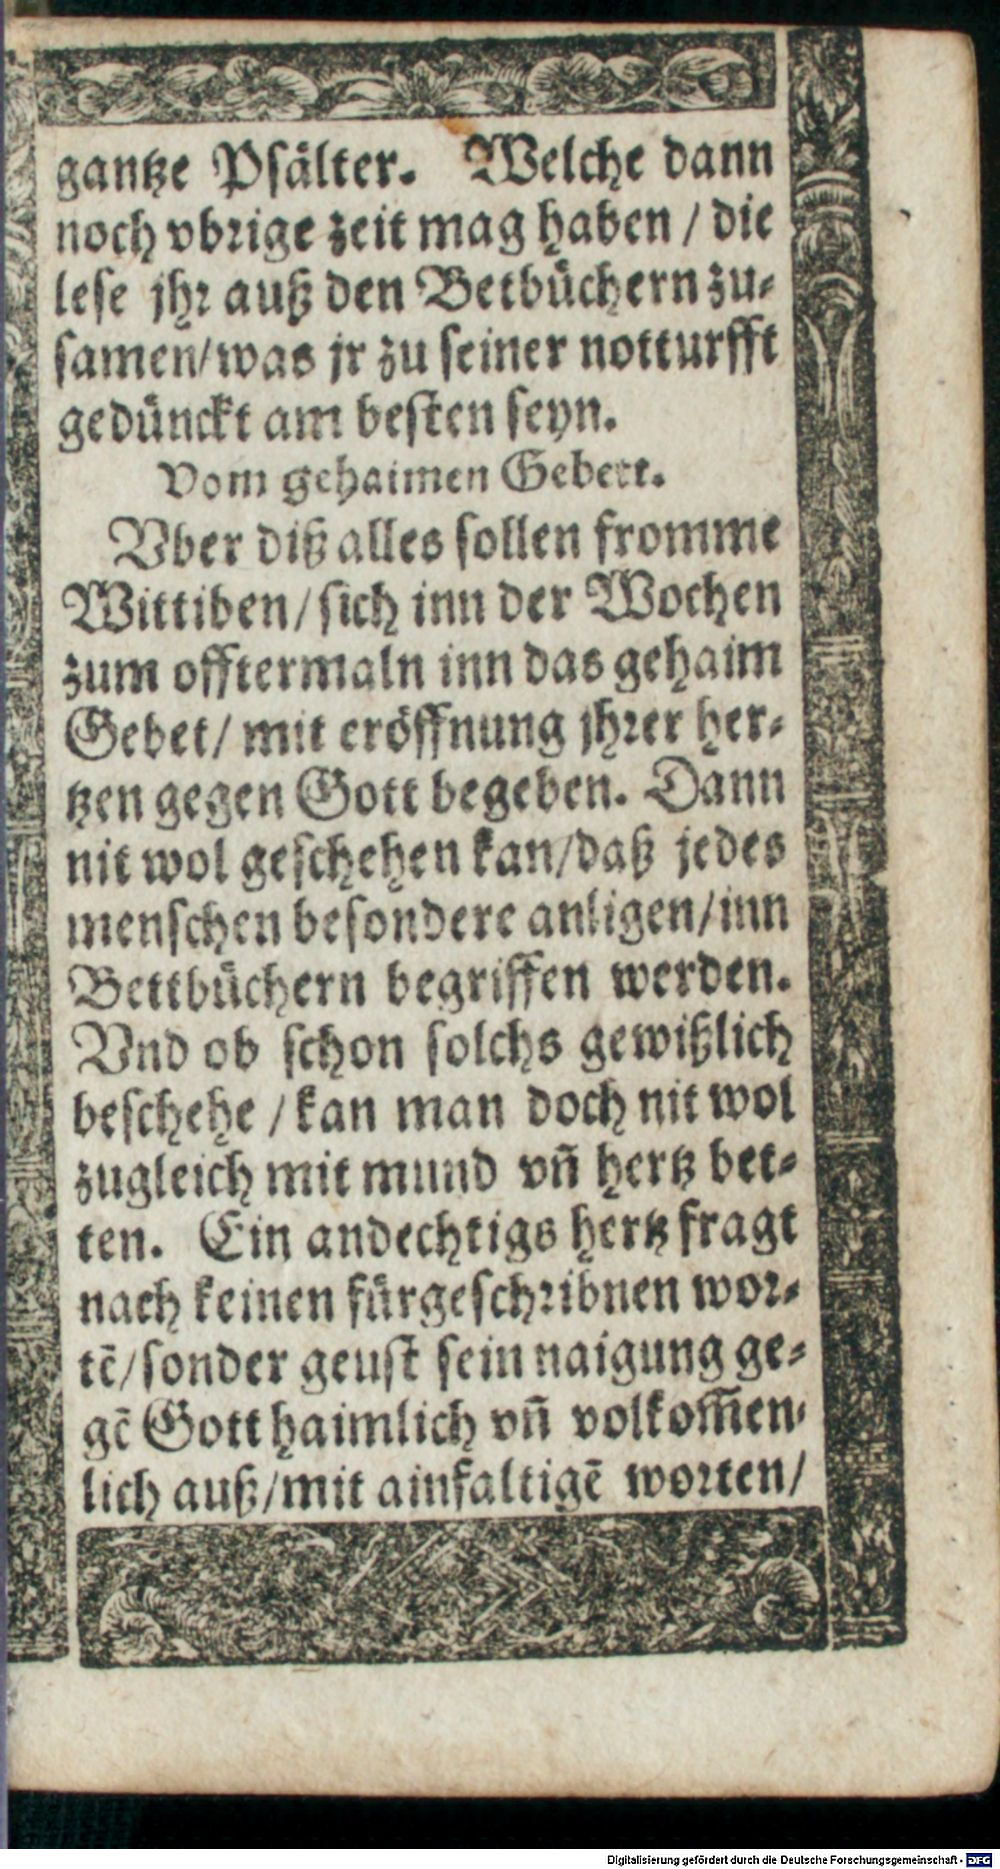 gantze Psälter. Welche dann
noch vbrige zeit mag haben / die
lese jhr auß den Betbüchern zu-
samen/was jr zu seiner notturfft
gedünckt am besten seyn.
Vom gehaimen Gebett.
Vber diß alles sollen fromme
Wittiben/ sich inn der Wochen
zum offtermaln inn das gehaim
Gebet/ mit eröffnung jhrer her-
tzen gegen Gott begeben. Dann
nit wol geschehen kan/daß jedes
menschen besondere anligen/inn
Bettbüchern begriffen werden.
Vnd ob schon solchs gewißlich
beschehe / kan man doch nit wol
zugleich mit mund vñ hertz bet-
ten. Ein andechtigs hertz fragt
nach keinen fürgeschribnen wor-
tē/sonder geust sein naigung ge-
gē Gott haimlich vñ volkom̄en-
lich auß/mit ainfaltigē worten/
Digitalisierung gefördert durch die Deutsche Forschungsgemeinschaft - DFG